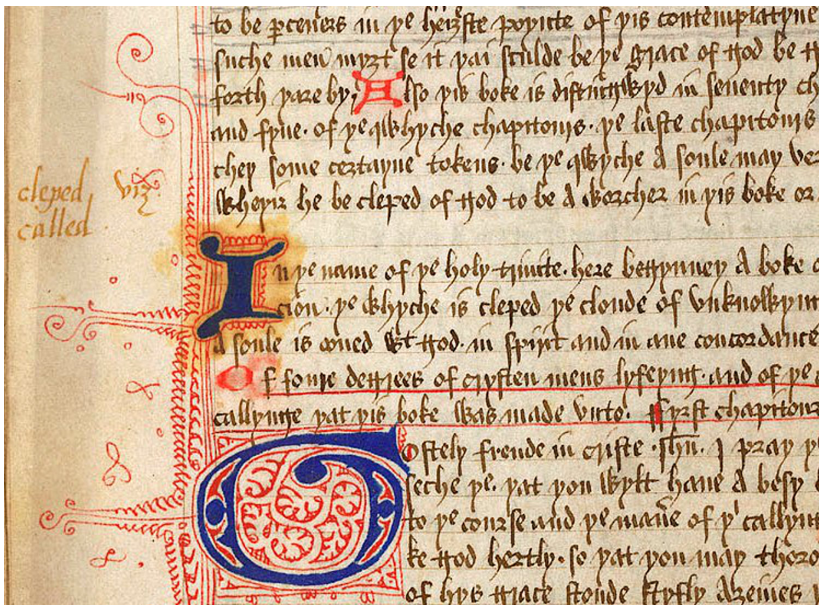 to be ꝑceners in ye heizste poynte of yis contemplatyue
suche men myzt se it yai sculde be ye grace of god be
forth yare by. Also yis boke is distingwyd in seuenty
and fyue. of ye qwhyche chapitouris. ye laste chapitouris
they some certayne tokens. be ye qwyche A soule may
wheyir he be cleped of god to be A worcher in yis boke or
cleped viz
called
In ye name of ye holy trinite. here begynney A boke
cion. ye whyche is cleped ye cloude of vnknowyn
A soule is oned wt god. in spirit and in ane concordance
Of some degrees of crysten mens lyfeyng. and of ye
callynge yat yis boke was made vnto. fyrst chapitour
Gostely frende in criste ihu. I pray
seche ye. yat you wylt haue A besy
to ye course and ye man̄e of yi callyn
ke god hertly. so yat you may thoro
of hys grace stonde styfly Azeines